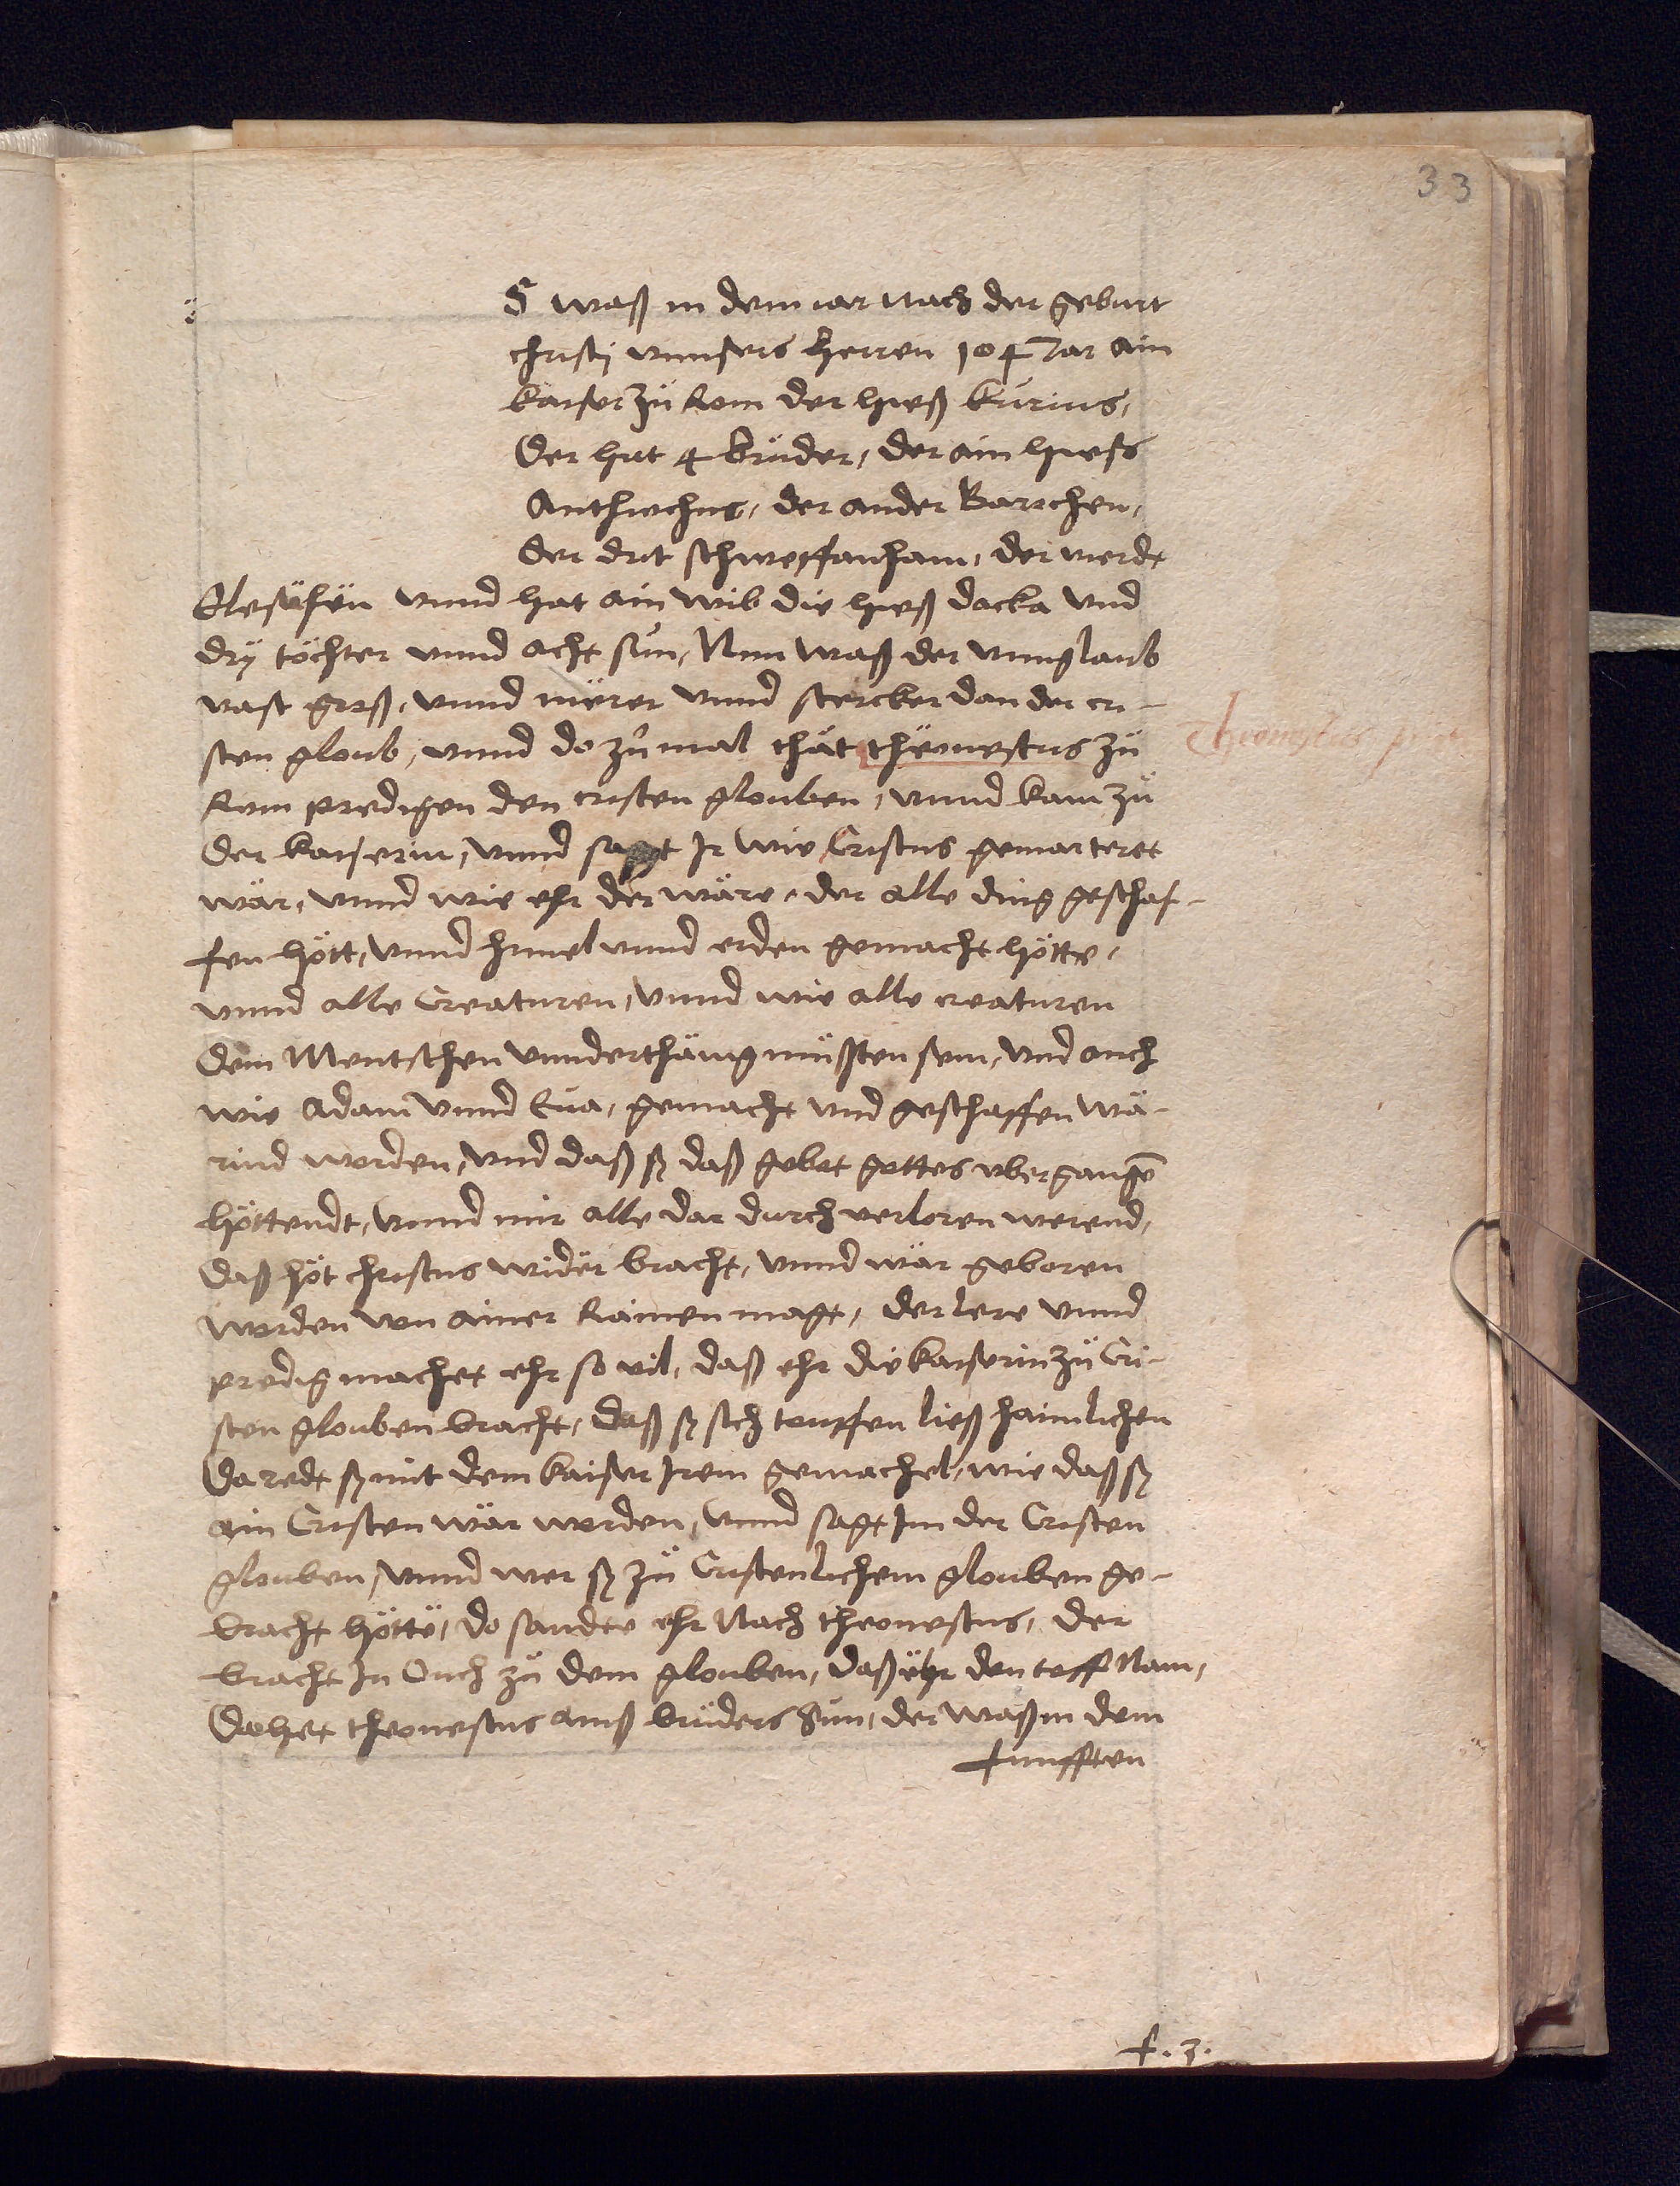 33
S waß in dem iar nach der geburt
christÿ vnnsers herren 104 Jar ain
kaiser zů Rom der hieß kurius,
Der hat 4 brüder, der ain hiess
Anthiochus, der ander Barchen,
der drit schweffanham, der vierdt
Elesüfën vnnd hat ain wib die hieß docka vnd
drÿ töchter vnnd acht sün, Nun waß der vnnglaub
vast groß, vnnd mërer vnnd stercker dan der cri-
sten gloub, vnnd do zů mal thät theonestus zů
theonestus
Rom predigen den cristen glouben, vnnd kam zů
der kaiserin, vnnd sagt Ir wie Cristus gemarteret
wär, vnnd wie ehr der wäre, der alle ding geschaf-
fen hött, vnnd himel vnnd erden gemacht hötte,
vnnd alle Creaturen, vnnd wie alle creaturen
dem Mentschen vnnderthänig müssten sein, vnd auch
wie Adam vnnd Eua, gemacht vnd geschaffen wä-
rind worden, vnd daß sÿ daß gebot gottes vbergangē
höttendt, vnnd mir alle dar durch verloren werend,
daß höt christus wider bracht, vnnd wär geboren
worden von ainer Rainen magt, der lere vnnd
predig machet ehr so vil, daß ehr die kaiserin zů Cri-
sten glouben bracht, daß sÿ sich touffen ließ haimlichen
Da redt sÿ mit dem kaiser Irem gemachel, wie daß sÿ
ain Cristen wär worden, vnnd sagt Im der Cristen
glouben, vnnd wer sÿ zů Cristenlichem glouben ge-
bracht höttë, do sandte ehr Nach theonestus, der
bracht In Ouch zů dem glouben, daß ehr den toff Nam,
Do het theonestus ainß brüders Sun, der waß in dem
funfften
f. 3.